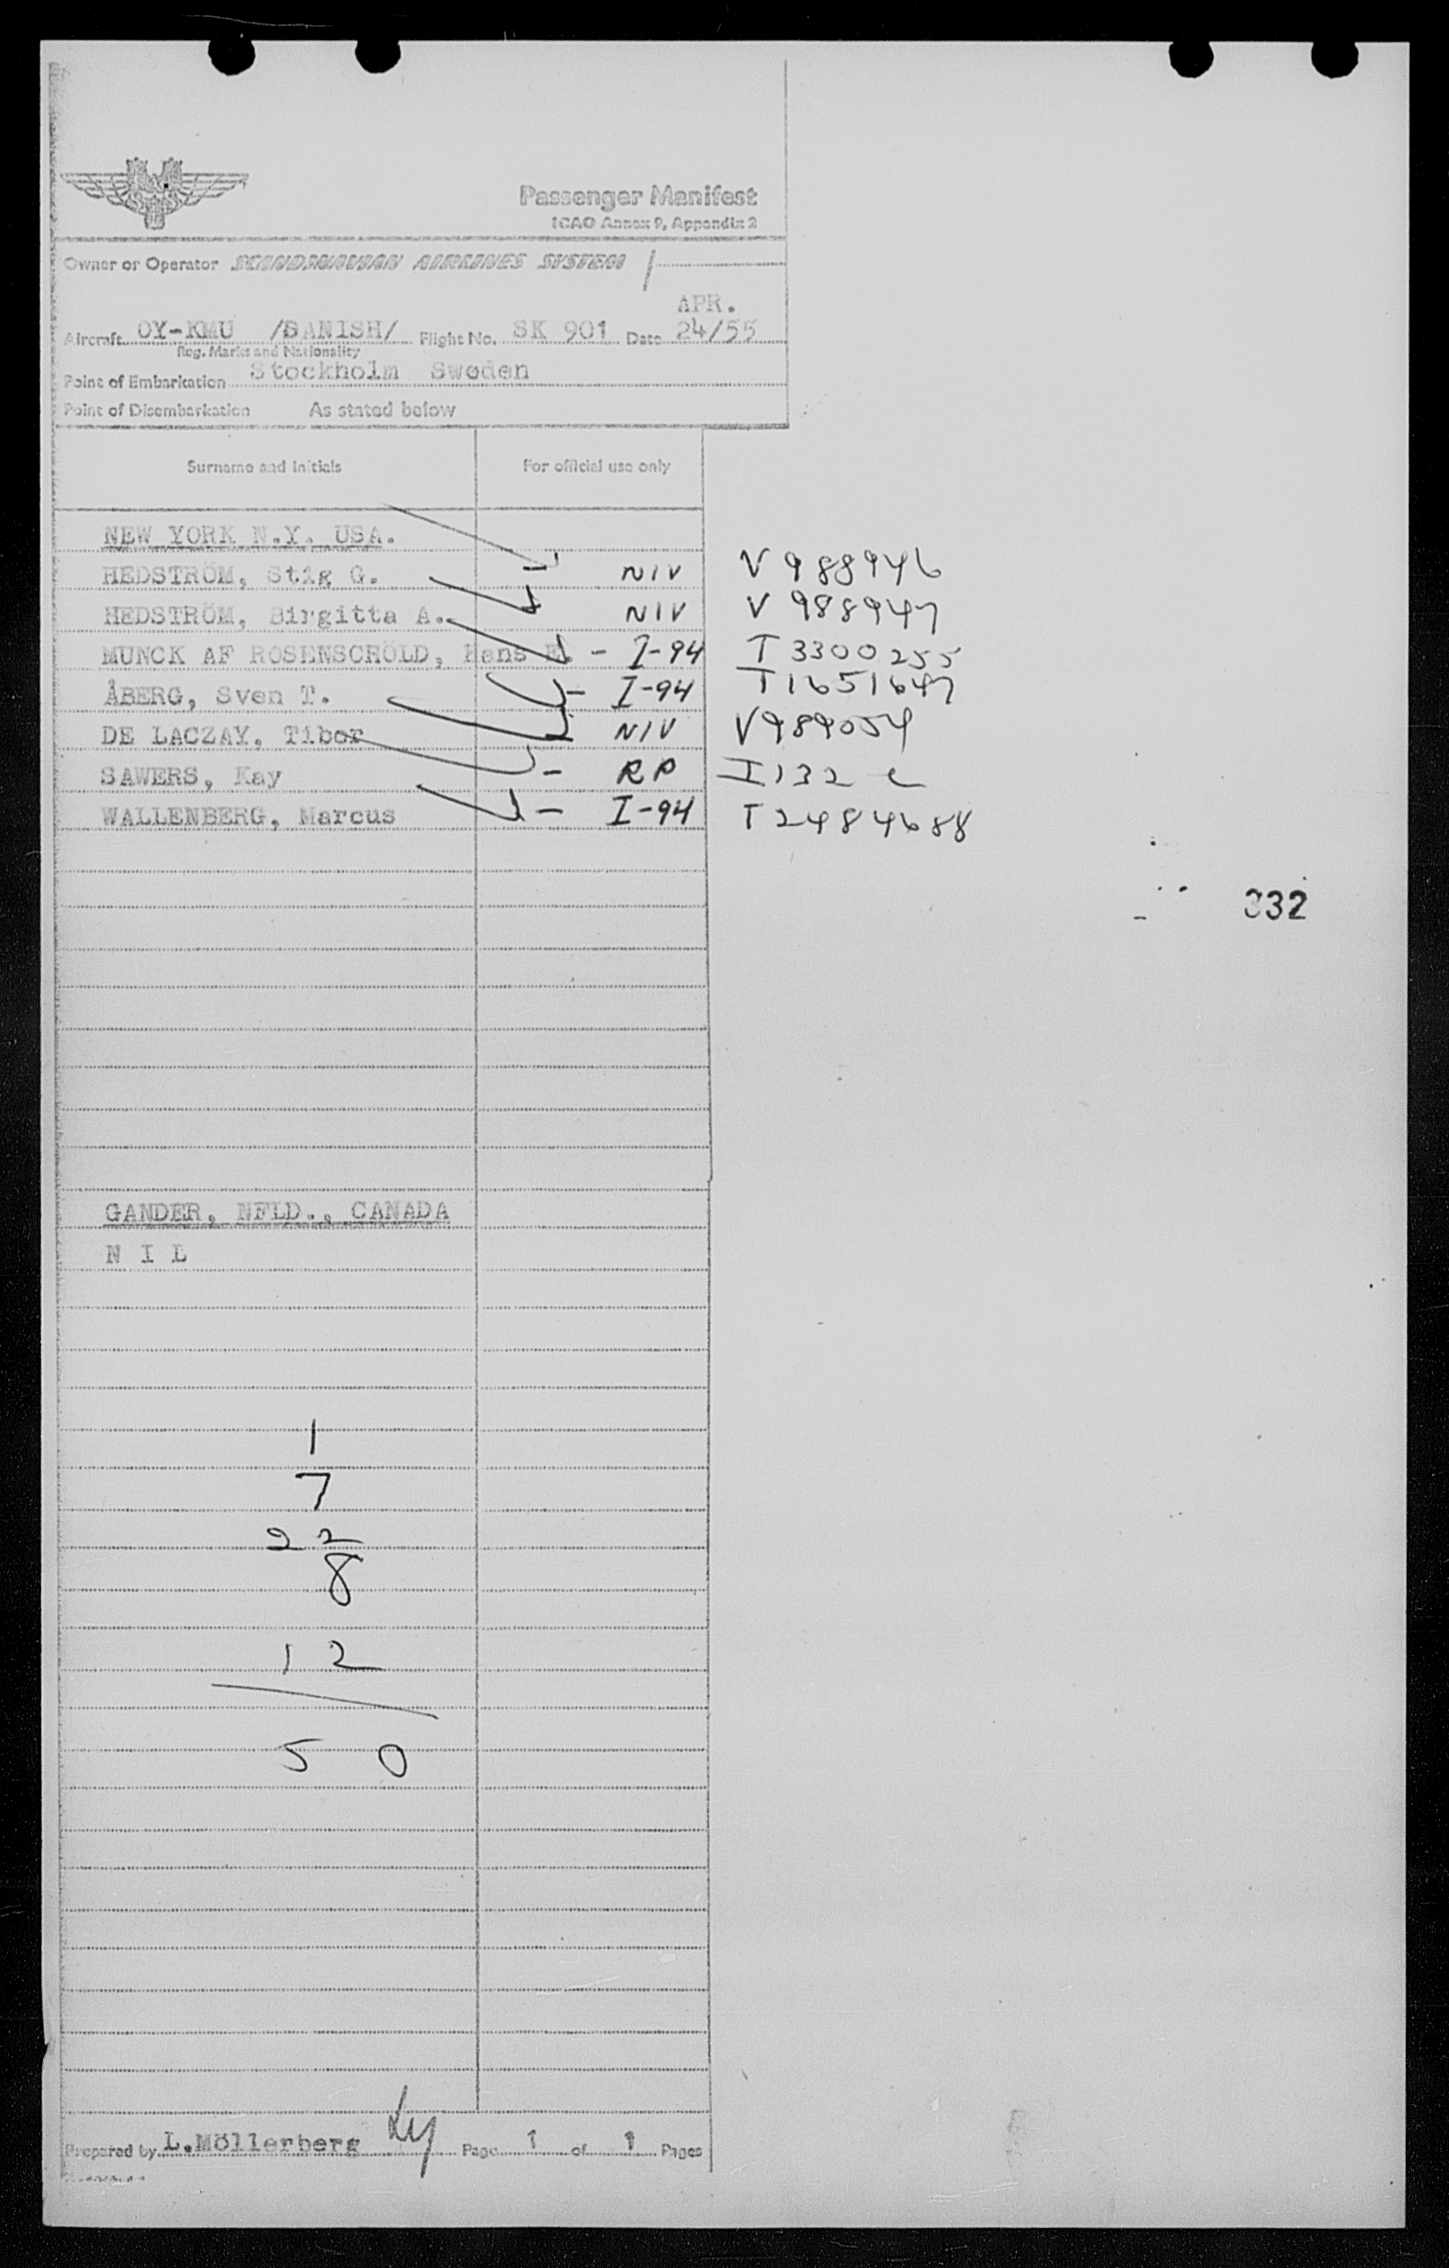 Passenger Manifest
ICAO Annex 9, Appendix 2
Owner or Operator SCANDINAVIAN AIRLINES SYSTEM
APR.
Aircraft OY-KMU /DANISH/ Flight No. SK 901 Date 24/55
Reg. Marks and Nationality
Point of Embarkation Stockholm Sweden
Point of Disembarkation As stated below
Surname and Initials For official use only
NEW YORK N.Y. USA.
HEDSTRÖM, Stig G. - NIV V 988946
HEDSTRÖM, Birgitta A. NIV V 988947
MUNCK AF ROSENSCHÖLD, Hans E. - I-94 T 3300255
ÅBERG, Sven T. - I-94 T1651647
DE LACZAY, Tibor - NIV V989054
SAWERS, Kay - RP I132 c
WALLENBERG, Marcus - I-94 T2484688
332
GANDER, NFLD., CANADA
N I L
1
7
22
8
12
50
Prepared by L.Möllerberg Page 1 of 1 Pages